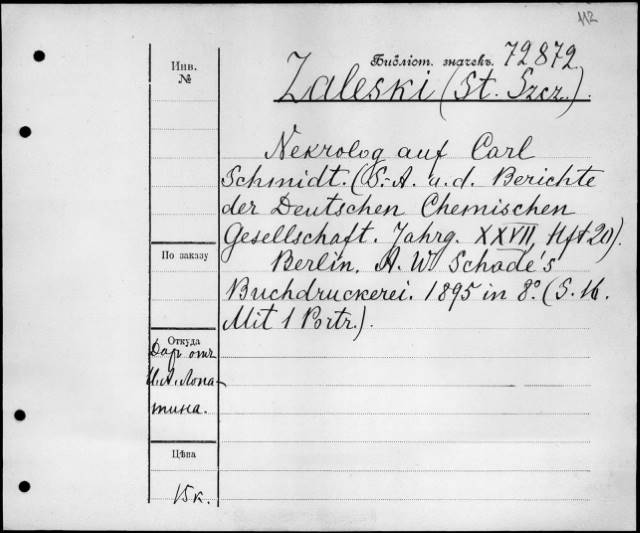 112
Библіот. значекъ. 72872
Инв.
№
Zaleski (St. Szcz.).
Nekrolog auf Carl
Schmidt. (S.-A. a. d. Berichte
der Deutschen Chemischen
Gesellschaft. Jahrg. XXVII, Hft 20).
По заказу
Berlin. A. W. Schade's
Buchdruckerei. 1895 in 8°. (S. 16.
Mit 1 Portr.).
Откуда
Дар отъ
И. А. Лопа-
тина.
Цѣна
15 к.